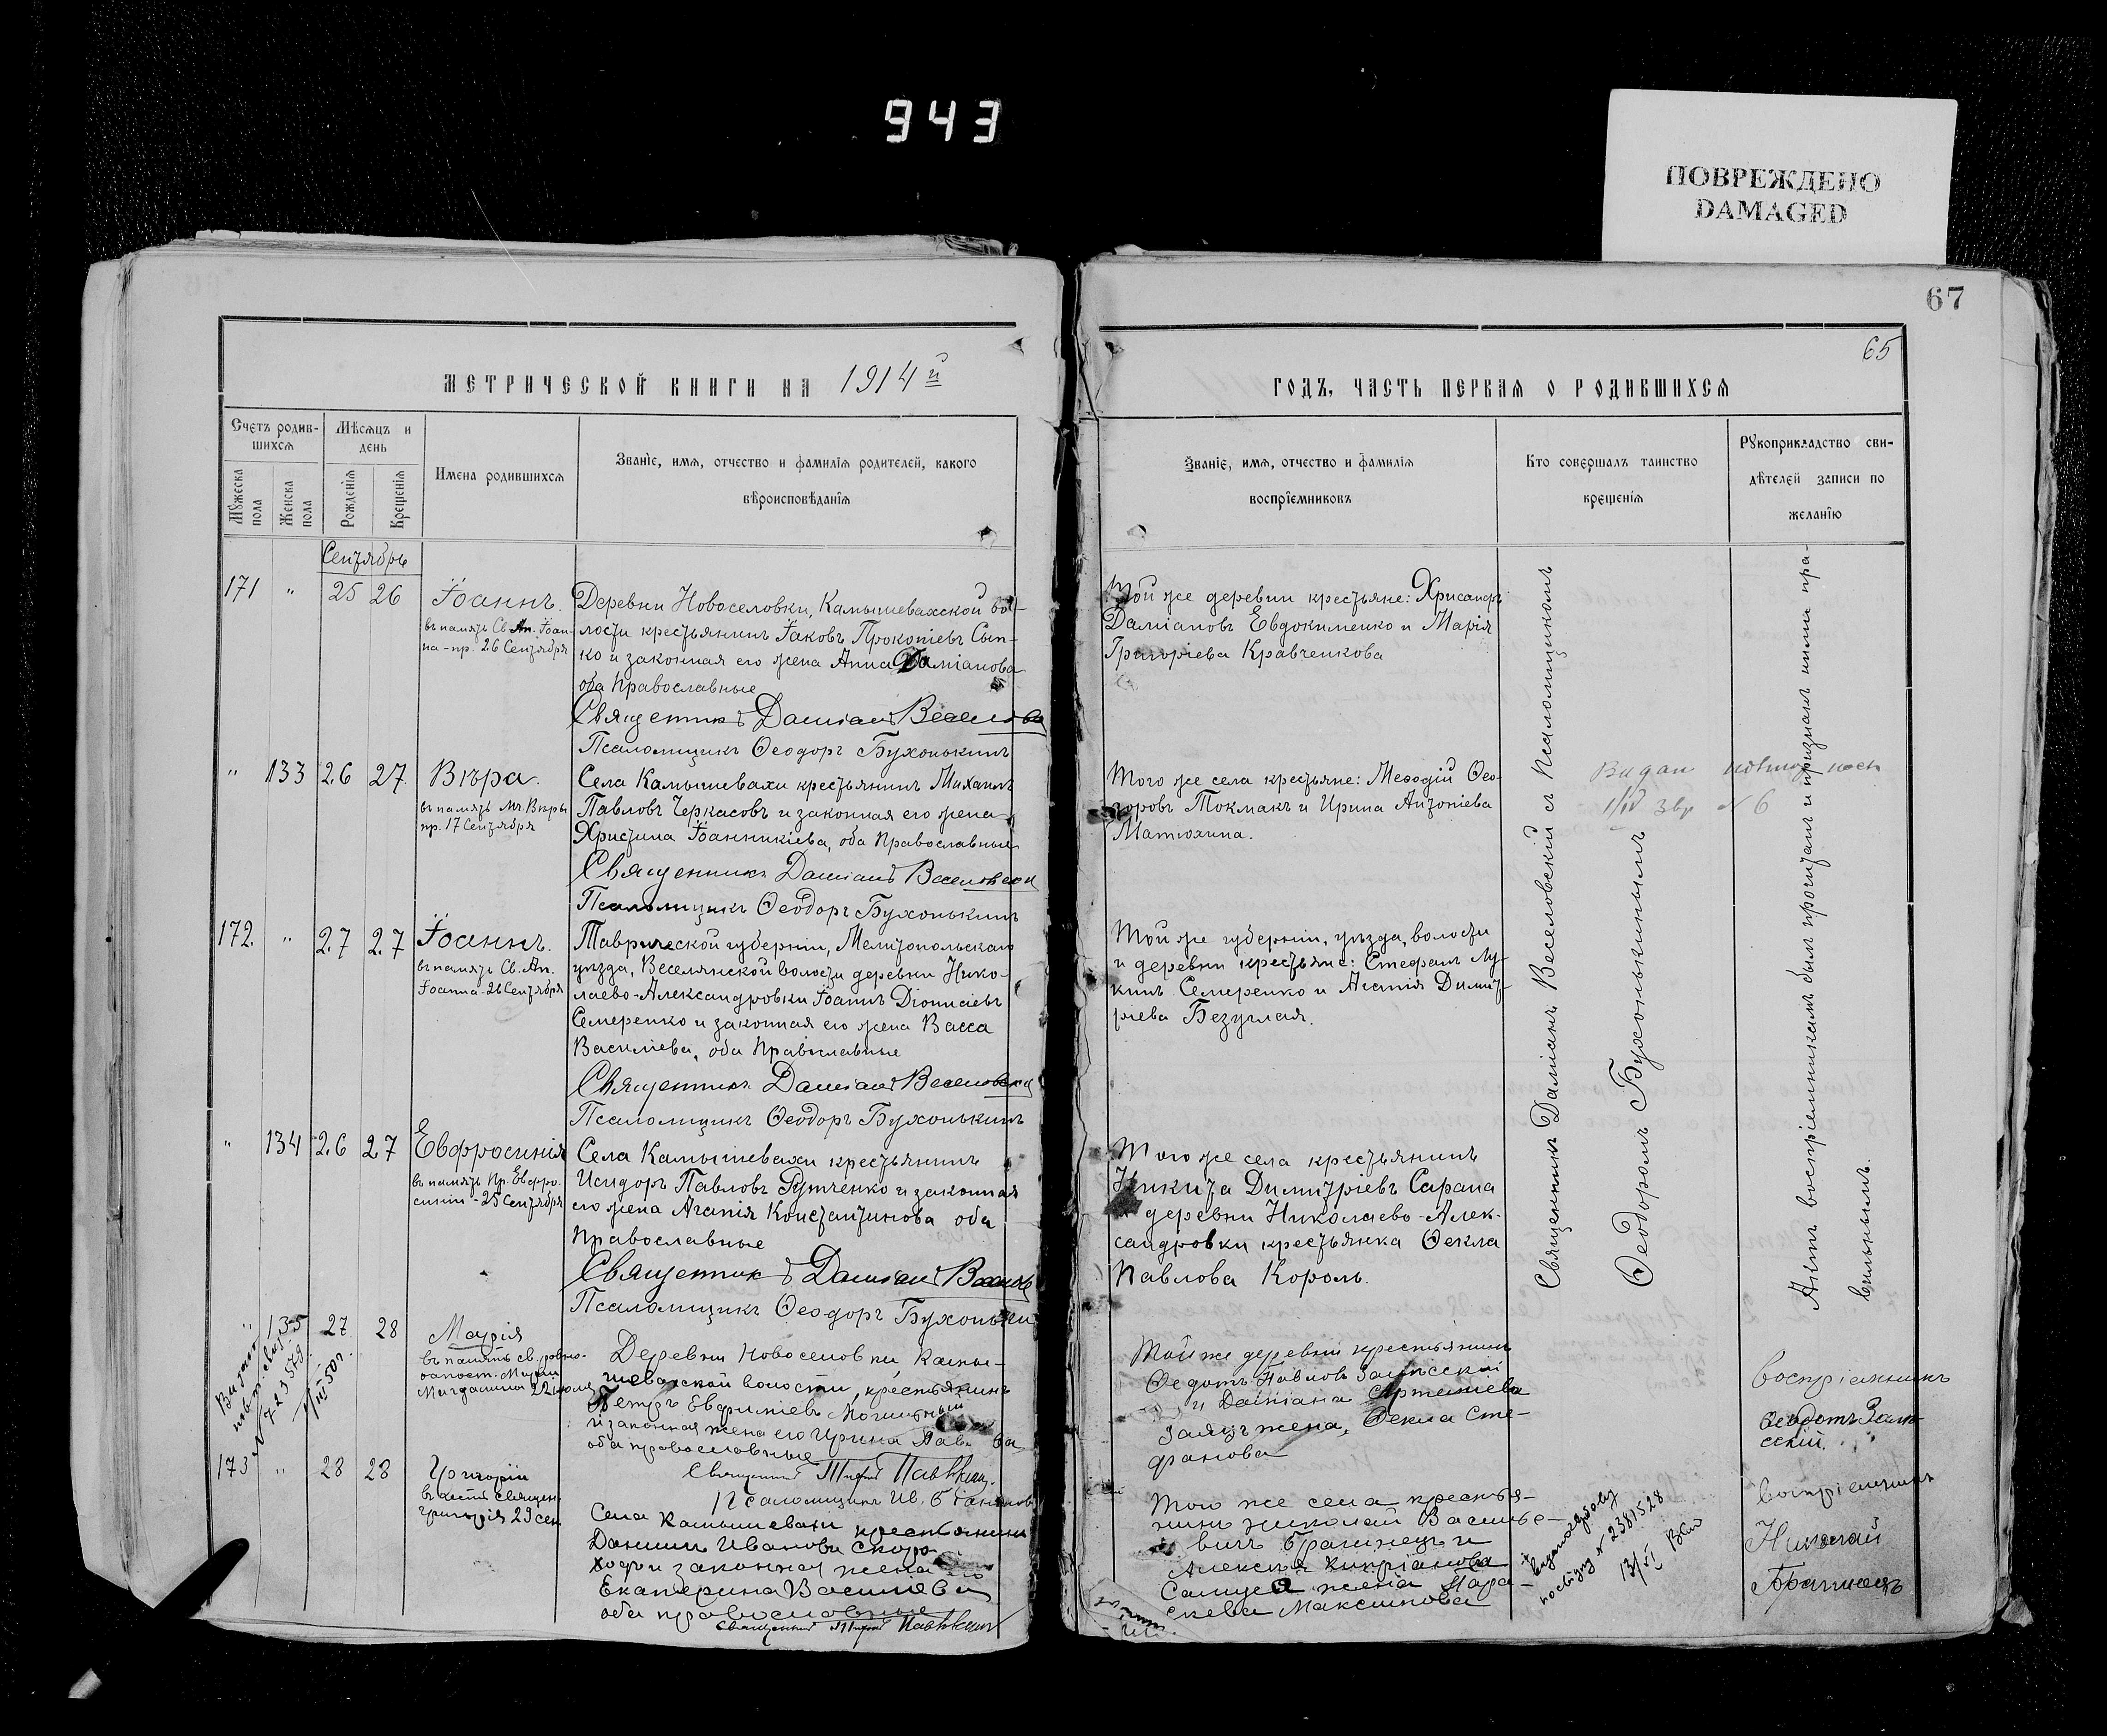 943
ПОВРЕЖДЕНО
DAMAGED
67
65
МЕТРИЧЕСКОЙ КНИГИ НА 1914й
ГОДЪ, ЧАСТЬ ПЕРВАЯ О РОДИВШИХСЯ
Счетъ родив-
шихся
Мужеска пола
Женска пола
Мѣсяцъ и
день
Рожденія
Крещенія
Имена родившихся
Званіе, имя, отчество и фамилія родителей, какого
вѣроисповѣданія
Званіе, имя, отчество и фамилія
воспріемниковъ
Кто совершалъ таинство
крещенія
Рукоприкладство сви-
дѣтелей записи по
желанію
Сентябрь
171 " 25 26
Іоаннъ.
въ память Св. Ап. Іоан-
на - пр. 26 Сентября
Деревни Новоселовки, Камышевахской во-
лости крестьянинъ Іаковъ Прокопіевъ Сып-
ко и законная его жена Анна Даміанова
оба Православные
Священникъ Даміанъ Веселовск
Псаломщикъ Ѳеодоръ Бухонькинъ
Той же деревни крестьяне: Хрисанфъ
Даміановъ Евдокименко и Марія
Григоріева Кравченкова
" 133 26 27
Вѣра.
въ память Мч. Вѣры
пр. 17 Сентября
Села Камышевахи крестьянинъ Михаилъ
Павловъ Черкасовъ и законная его жена
Христина Іоанникіева, оба Православные
Священникъ Даміанъ Веселовскій
Псаломщикъ Ѳеодоръ Бухонькинъ
Того же села крестьяне: Меѳодій Ѳео-
доровъ Токмакъ и Ирина Антоніева
Матюхина.
Видан
№ 6
172. " 27 27
Іоаннъ.
въ память Св. Ап.
Іоанна - 26 Сентября
Таврической губерніи, Мелитопольскаго
уѣзда, Веселянской волости деревни Нико-
лаево-Александровки Іоаннъ Діонисіевъ
Семеренко и законная его жена Васса
Василіева, оба Православные
Священникъ Даміанъ Веселовскій
Псаломщикъ Ѳеодоръ Бухонькинъ
Той же губерніи, уѣзда, волости
и деревни крестьяне: Стефанъ Лу-
кинъ Семеренко и Агапія Димит-
ріева Безуглая.
" 134 26 27
Евфросинія
въ память Пр. Евфро-
синіи - 25 Сентября
Села Камышевахи крестьянинъ
Исидоръ Павловъ Рутченко и законная
его жена Агапія Константинова оба
Православные
Священникъ Даміанъ Веселов
Псаломщикъ Ѳеодоръ Бухоньки
Того же села крестьянинъ
Никита Димитріевъ Сарана
деревни Николаево-Алек-
сандровки крестьянка Ѳекла
Павлова Король.
Священникъ Даміанъ Веселовскій съ Псаломщикомъ
Ѳеодоромъ Бухонькинымъ
Актъ воспріемникамъ былъ прочитанъ и признанъ ими пра-
вильнымъ.
" 135 27 28
Марія
въ память св. равно-
апост. Маріи
Магдалины 22 іюля
Деревни Новоселовки, Камы-
шевахской волости, крестьянинъ
Петръ Евфиміевъ Могильный
и законная жена его Ирина
оба православные
Священникъ Павлкин
Псаломщикъ Ив.
Той же деревни крестьянинъ
Ѳедотъ Павловъ Залѣсскій
и Даміана Артеміева
Заяцъ жена, Ѳекла Сте-
фанова
воспріемникъ
Ѳедотъ Залѣ-
сскій.
173 " 28 28
Григорій
въ честь священ.
Григорія 29 сен.
Села Камышевахи крестьянинъ
Даніилъ Ивановъ Скоро-
ходъ и законная жена его
Екатерина Василіева
оба православные
Священникъ Павлкин
Того же села крестья-
нинъ Николай Василье-
вичъ Брагинецъ и
Алексѣя Кипріанова
жена Пара-
скева Максимова
13/VI
воспріемникъ
Николай
Брагинецъ